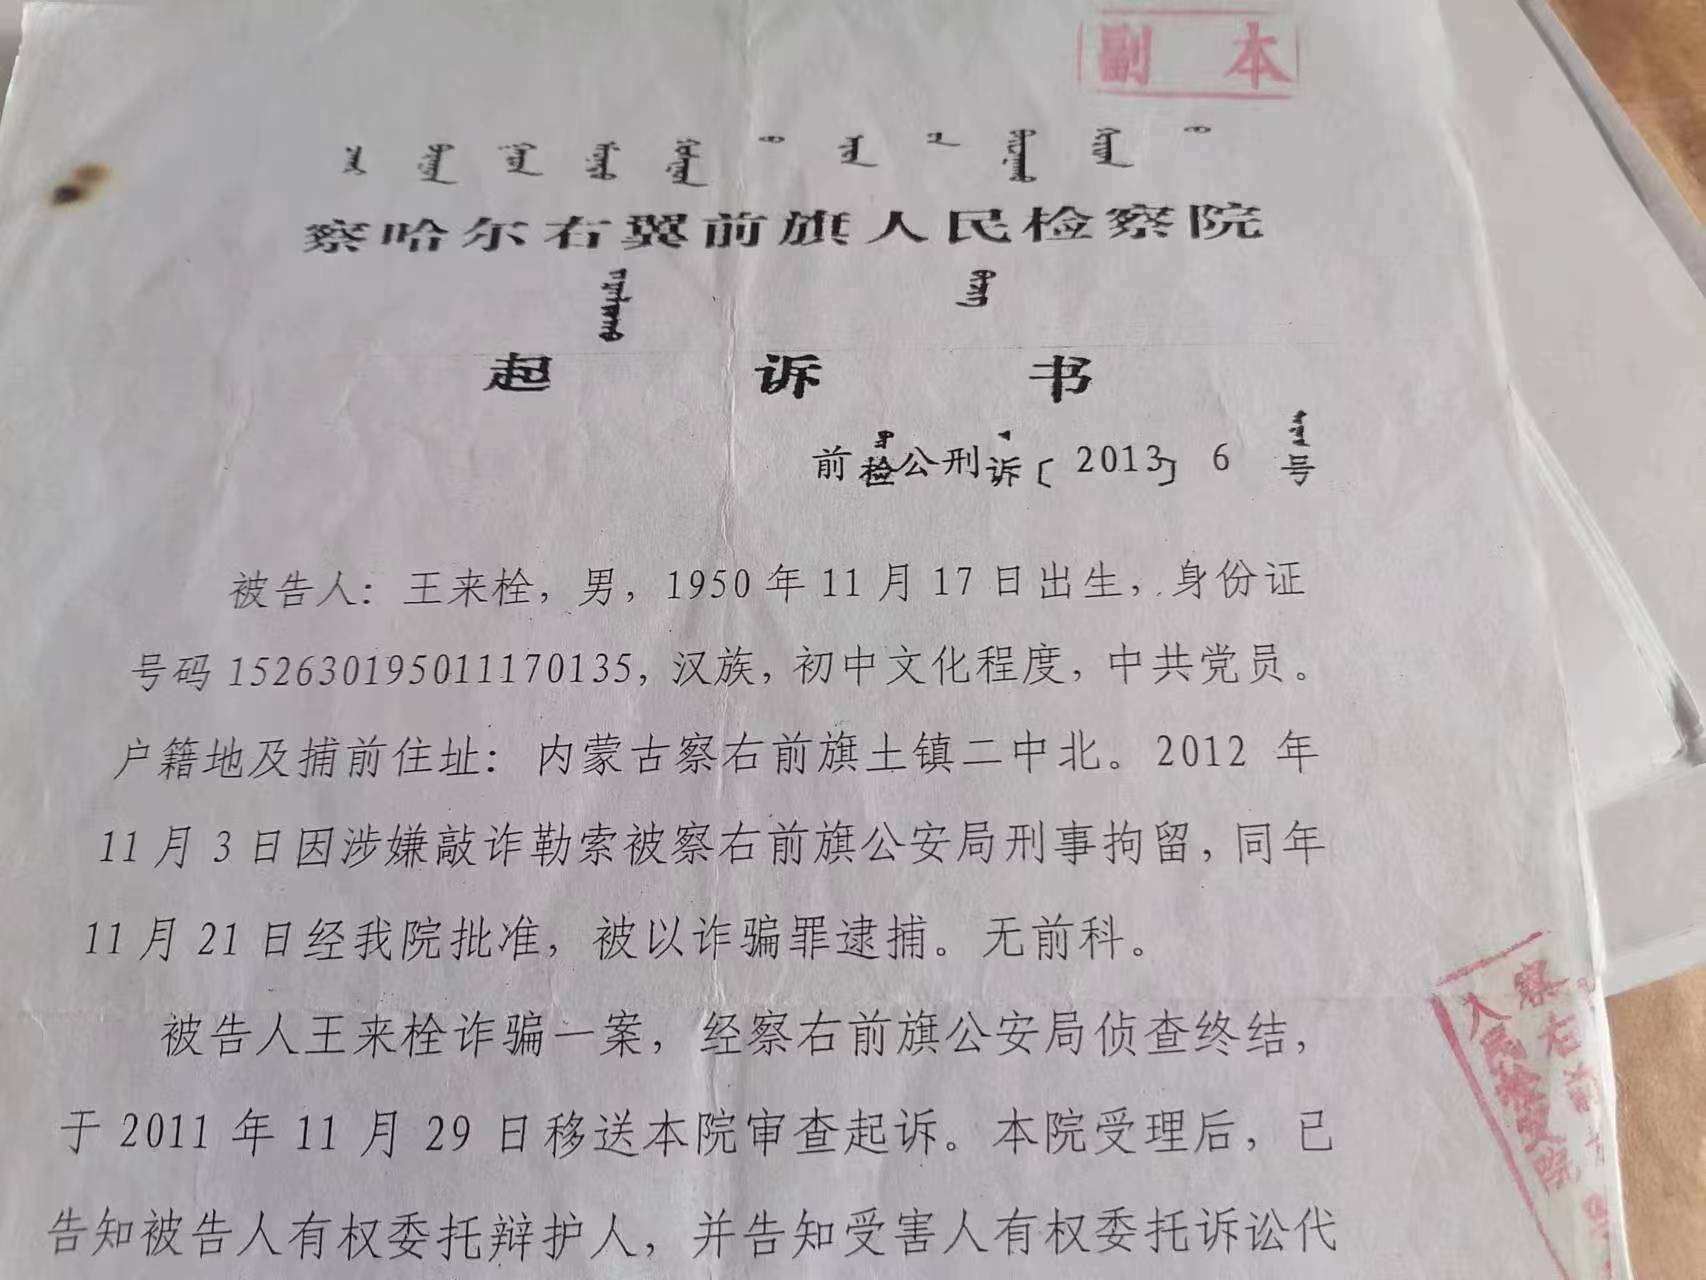 副 本
察哈尔右翼前旗人民检察院
起 诉 书
前检公刑诉〔2013〕6 号
被告人：王来栓，男，1950年11月17日出生，身份证
号码152630195011170135，汉族，初中文化程度，中共党员。
户籍地及捕前住址：内蒙古察右前旗土镇二中北。2012 年
11月3日因涉嫌敲诈勒索被察右前旗公安局刑事拘留，同年
11月21日经我院批准，被以诈骗罪逮捕。无前科。
被告人王来栓诈骗一案，经察右前旗公安局侦查终结，
于2011年11月29日移送本院审查起诉。本院受理后，已
告知被告人有权委托辩护人，并告知受害人有权委托诉讼代
察右前
人民检察院